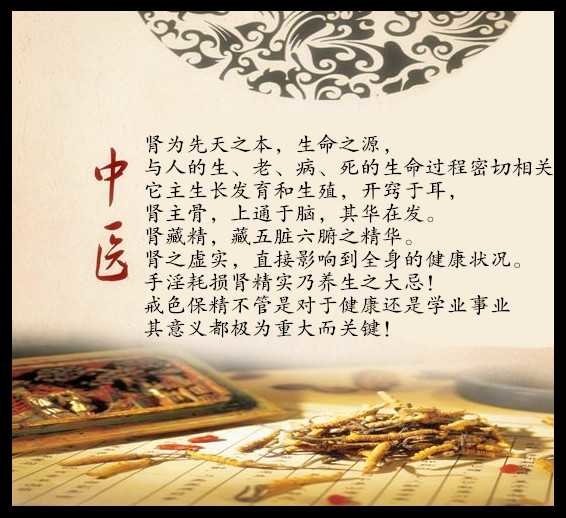 中医
肾为先天之本，生命之源，
与人的生、老、病、死的生命过程密切相关
它主生长发育和生殖，开窍于耳，
肾主骨，上通于脑，其华在发。
肾藏精，藏五脏六腑之精华。
肾之虚实，直接影响到全身的健康状况。
手淫耗损肾精实乃养生之大忌！
戒色保精不管是对于健康还是学业事业
其意义都极为重大而关键！